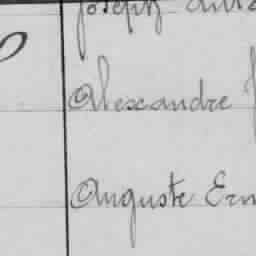 Joseph
Alexandre
Auguste